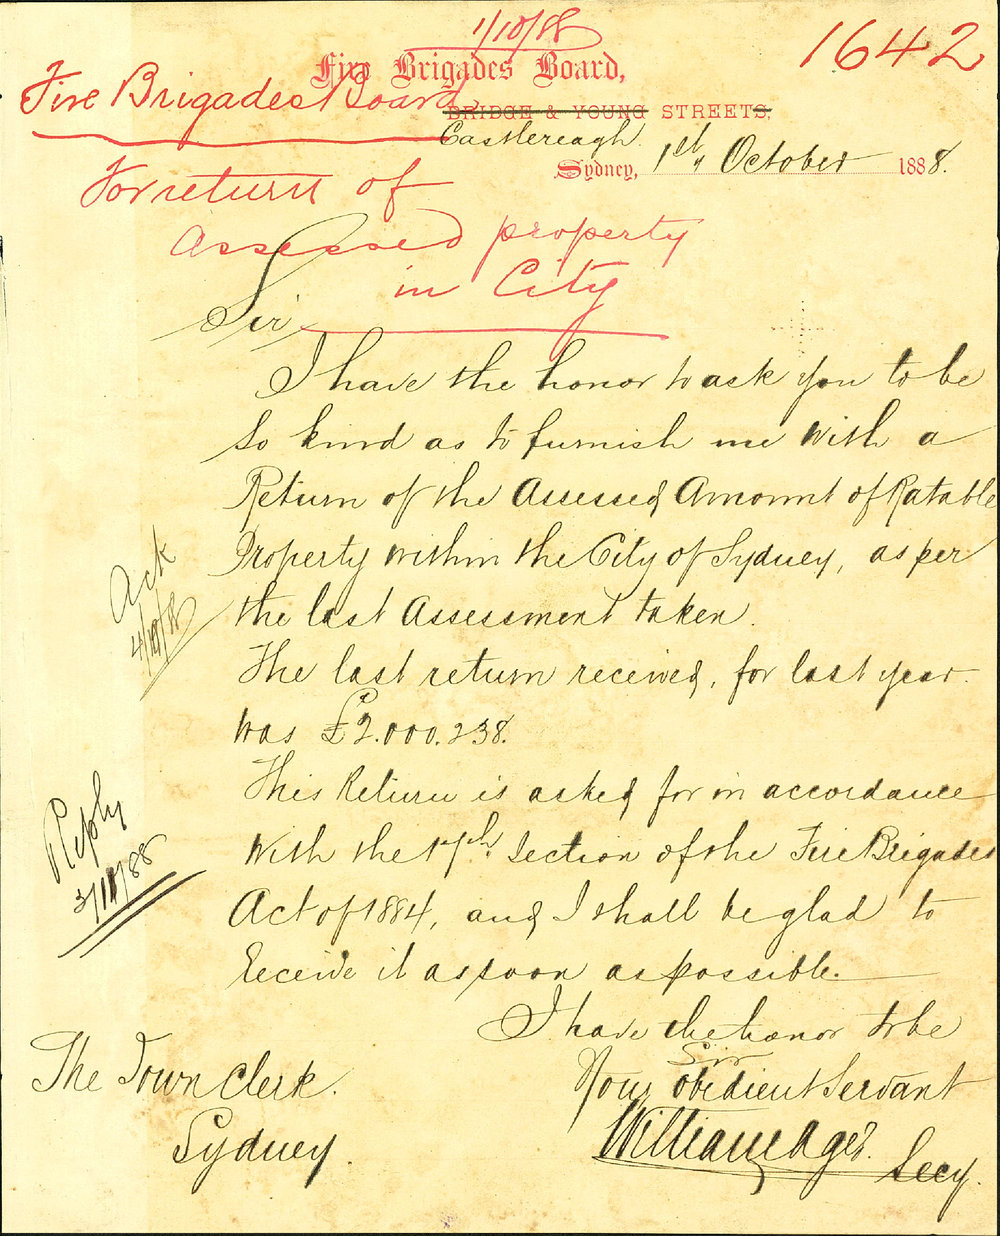 1/10/88
1642
Fire Brigades Board,
Fire Brigades Board
BRIDGE & YOUNG STREETS,
Castlereagh
Sydney, 1st October 1888.
For return of
assessed property
in City
Sir
I have the honor to ask you to be
so kind as to furnish me with a
Return of the Assessed Amount of Ratable
Property within the City of Sydney, as per
the last Assessment taken.
The last return received, for last year
was £2.000.238.
This Return is asked for in accordance
with the 17th Section of the Fire Brigades
Act of 1884, and I shall be glad to
receive it as soon as possible.
I have the honor to be
Sir
Your obedient Servant
William Ager.
Secy.
The Town Clerk.
Sydney.
Ack
4/10/88
Reply
3/11/88